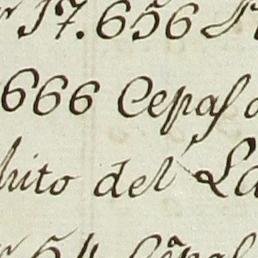 17.656
666 Cepas
hito del La
54 Cepas